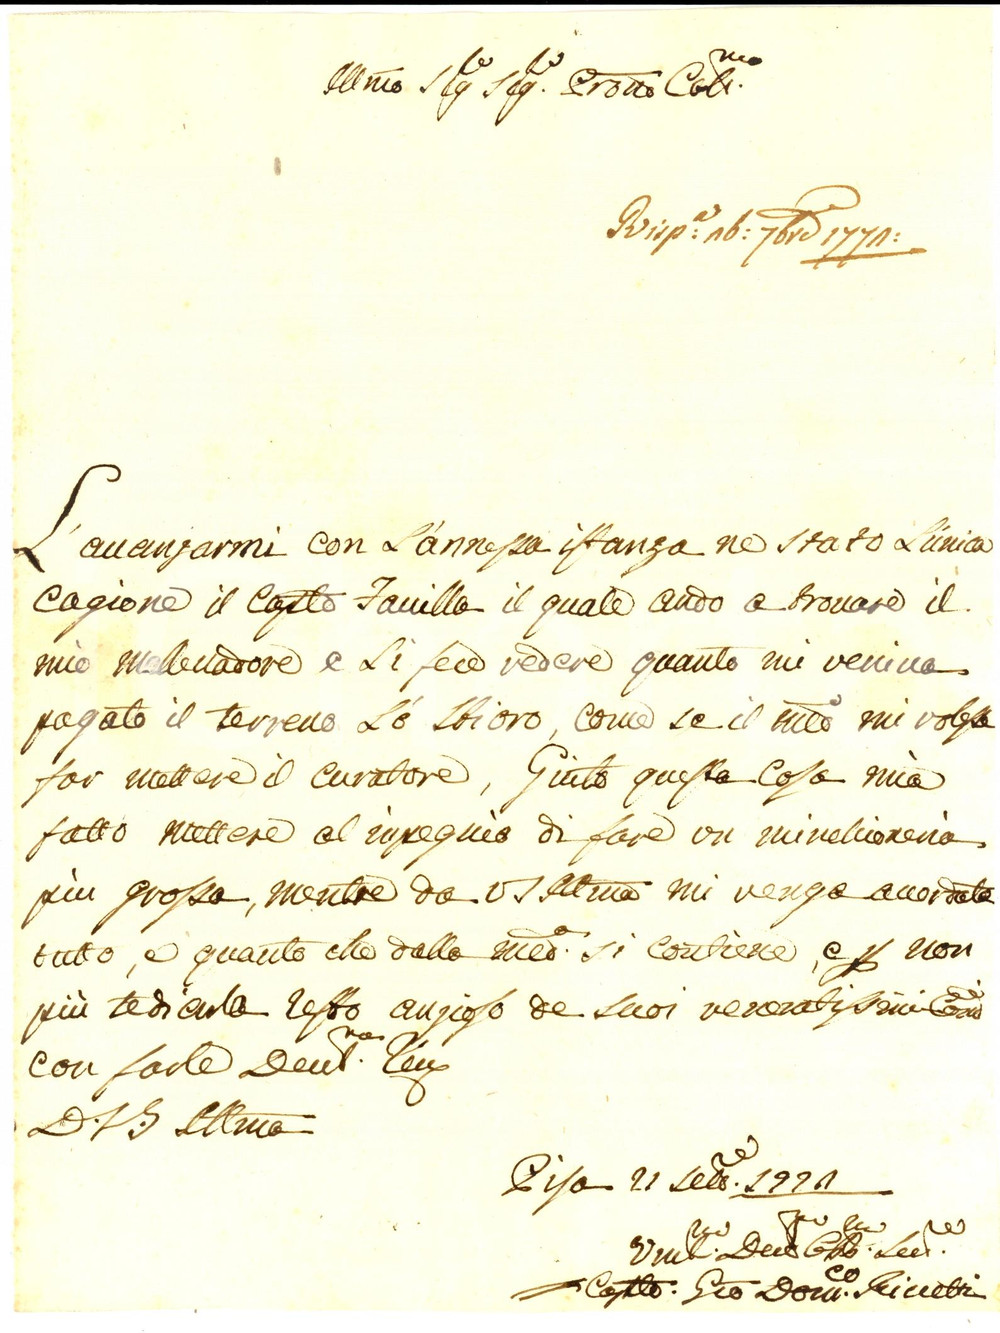 Illmo Sigre Sigre Prone Colmo
Rispa: 26: 7bre 1771:
L'auanzarmi con L'annessa istanza ne stato L'unica
cagione il Captto Fauilla il quale ando a trouare il
mio Maleuadore e Li fece vedere quanto mi veniua
pagato il terreno Lo Sbioro, come se il mio mi volesse
far mettere il curatore, Giusto questa cosa mia
fatto mettere al inpegnio di fare vn minchioneria
piu grossa, mentre da VS Illma mi venga acordato
tutto, e quanto che dalla meda. si contiene, e p non
più tediarla resto ansioso de suoi veneratissimi
con farle Deuma. Riu
D.V.S. Illma
Pisa 21 Sette. 1771
Vmilmo. Deumo Obbmo. Serre.
Captto: Gio Domco.